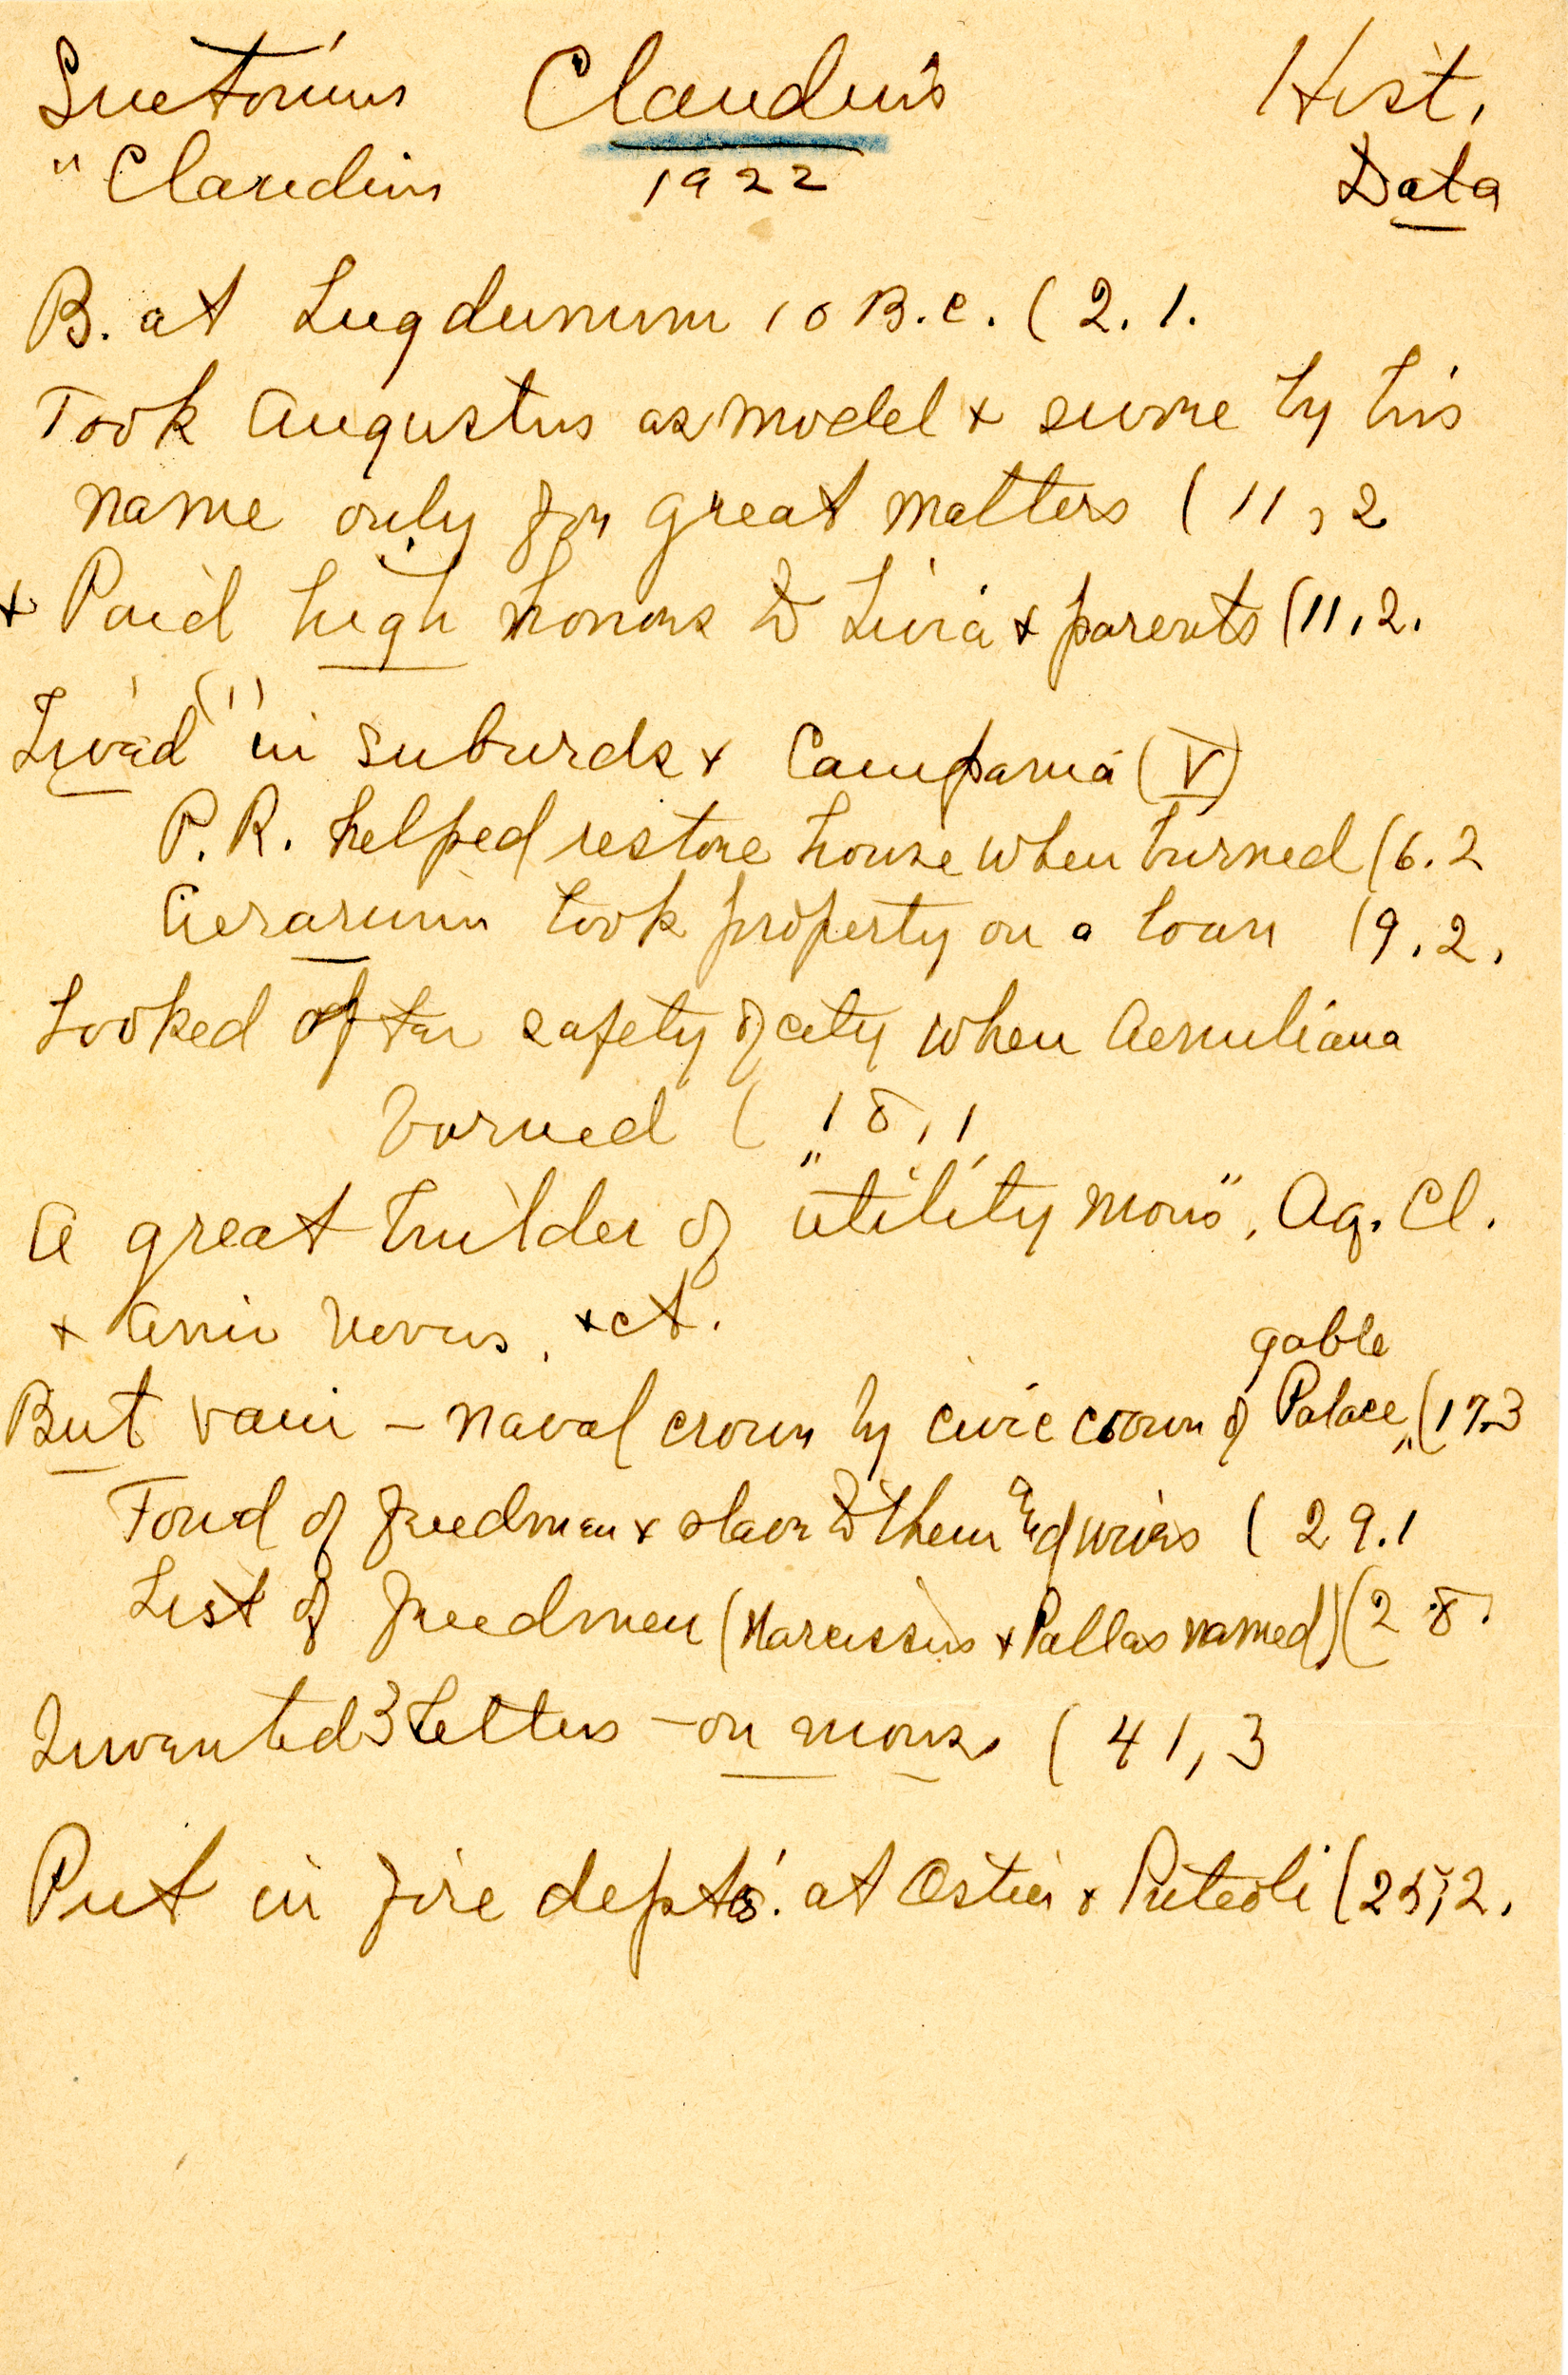 Suetonius Claudius Hist.
"Claudius 1922 Data
B. at Lugdunum 10 B.C. (2.1.
Took Augustus as model + swore by his
name only for great matters (11,2
+ Paid high honors to Livia + parents (11,2.
Lived (1) in suburbs + Campania (V)
P.R. helped restore house when burned (6.2
Aerarium took property on a loan (9.2.
Looked after safety of city when Aemuliana
burned (18,1,
A great builder of "utility mons", Aq. Cl.
+ Anio Novus, +ct.
gable
But vain - naval crown by civic crown of Palace, (17.3
Fond of freedmen + slave to them + wives (29.1
List of freedmen (Narcissus + Pallas named) (28.
Invented 3 letters - on mons. (41,3
Put in fire depts. at Ostia + Puteoli (25,2.